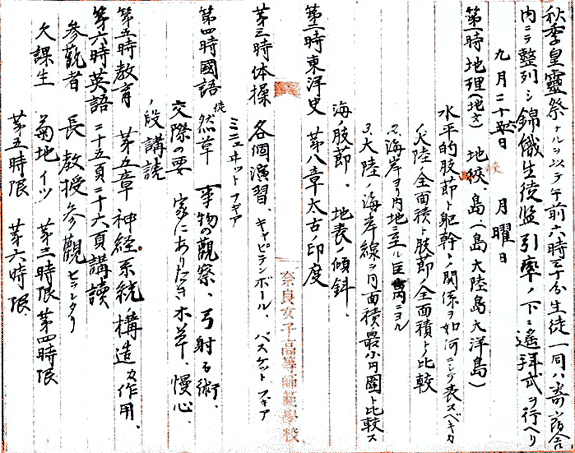 秋季皇靈祭ナルヲ以テ午前六時三十分生徒一同ハ寄宿舎
内ニテ整列シ錦織生徒監引率ノ下ニ遙拜式ヲ行ヘリ
九月二十五日 月曜日
第一時地理(地文) 地峽、島(島大陸島大洋島)
水平的肢節ト躯幹ト関係ヲ如何ニシテ表スベキカ
大陸ノ全面積ト肢節ノ全面積トノ比較
海岸ヨリ内地ニ至ル距離ニヨル
大陸ノ海岸線ヲ同面積最小円周ト比較ス
海肢節、地表ノ傾斜、
第二時東洋史 第八章太古ノ印度
第三時体操 各個演習、キャピテンボール、バスケットフギア
ミニュエットフギア
第四時國語 徒然草 事物の觀察、弓射る術、
交際の要 家にありたき木草、慢心、
ノ段講読
第五時教育 第五章神経系統ノ構造及作用、
第六時英語 二十五頁二十六頁講讀
参觀者 長教授参觀セラレタリ
欠課生 菊地イツ 第三時限第四時限
第五時限 第六時限
奈良女子高等師範學校